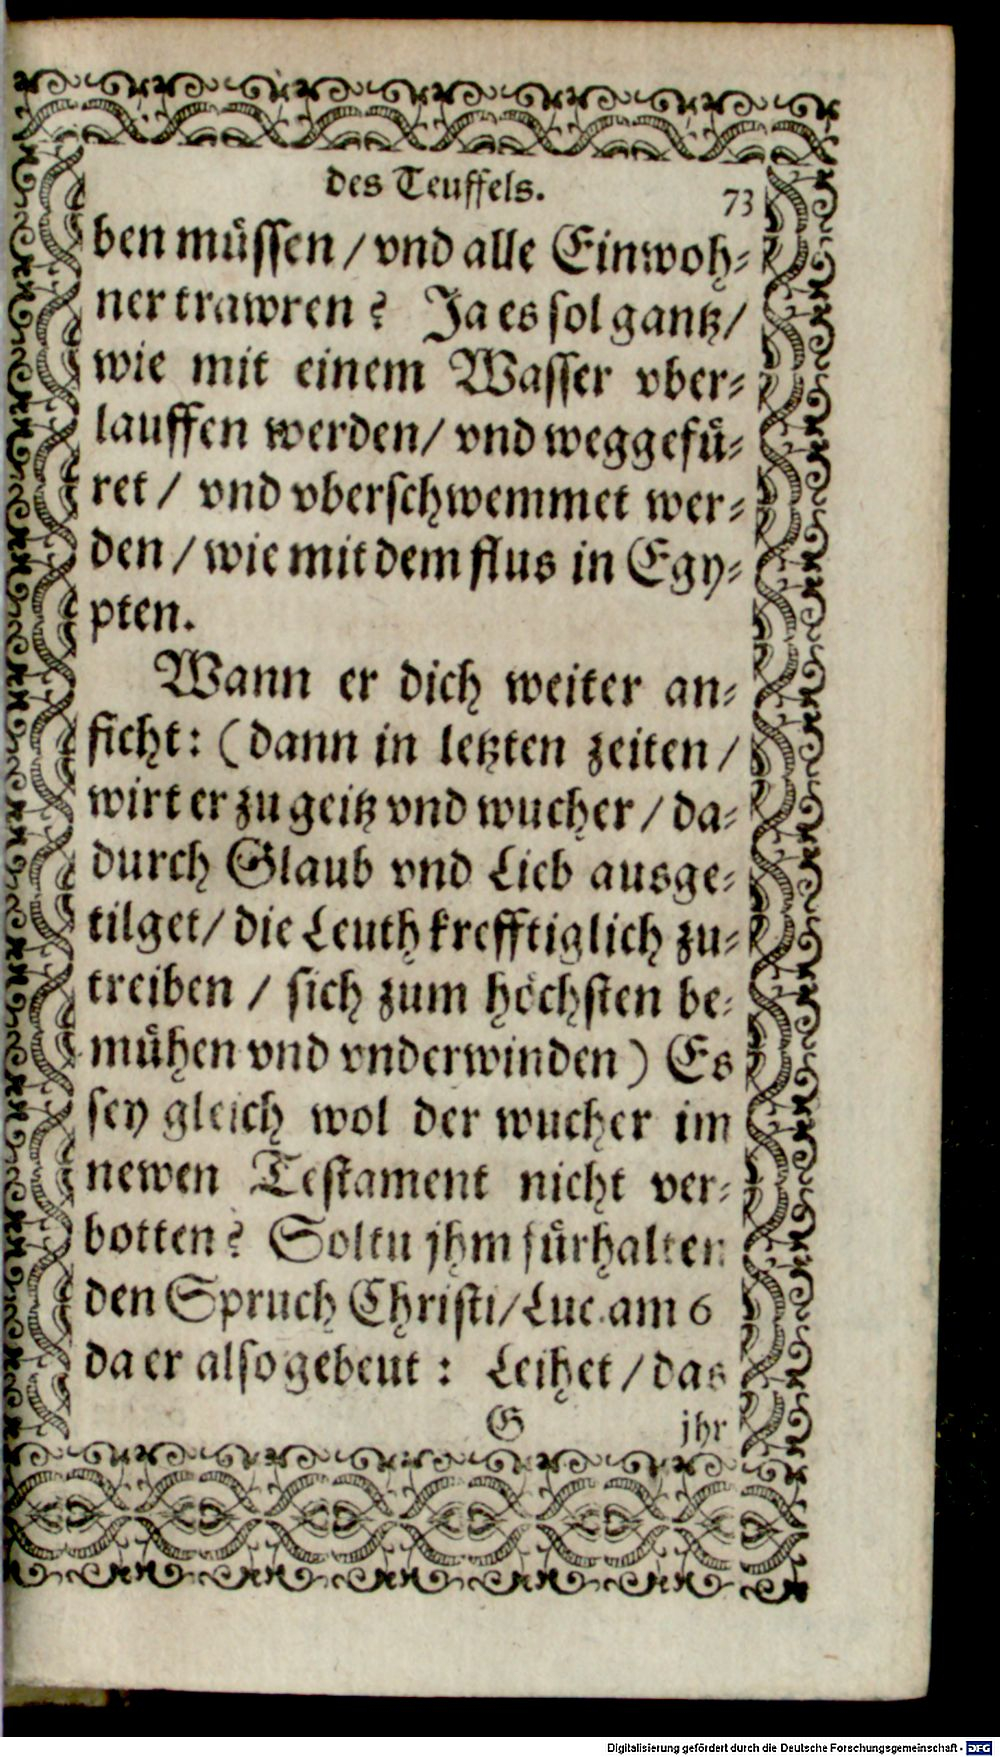 des Teuffels. 73
ben müssen / vnd alle Einwoh⸗
ner trawren? Ja es sol gantz /
wie mit einem Wasser vber⸗
lauffen werden / vnd weggefü⸗
ret / vnd vberschwemmet wer⸗
den / wie mit dem flus in Egy⸗
pten.
Wann er dich weiter an⸗
ficht: (dann in letzten zeiten /
wirt er zu geitz vnd wucher / da⸗
durch Glaub vnd Lieb ausge⸗
tilget / die Leuth krefftiglich zu⸗
treiben / sich zum höchsten be⸗
mühen vnd vnderwinden) Es
sey gleich wol der wucher im
newen Testament nicht ver⸗
botten? Soltu jhm fürhalten
den Spruch Christi / Luc. am 6
da er also gebeut: Leihet / das
G jhr
Digitalisierung gefördert durch die Deutsche Forschungsgemeinschaft - DFG